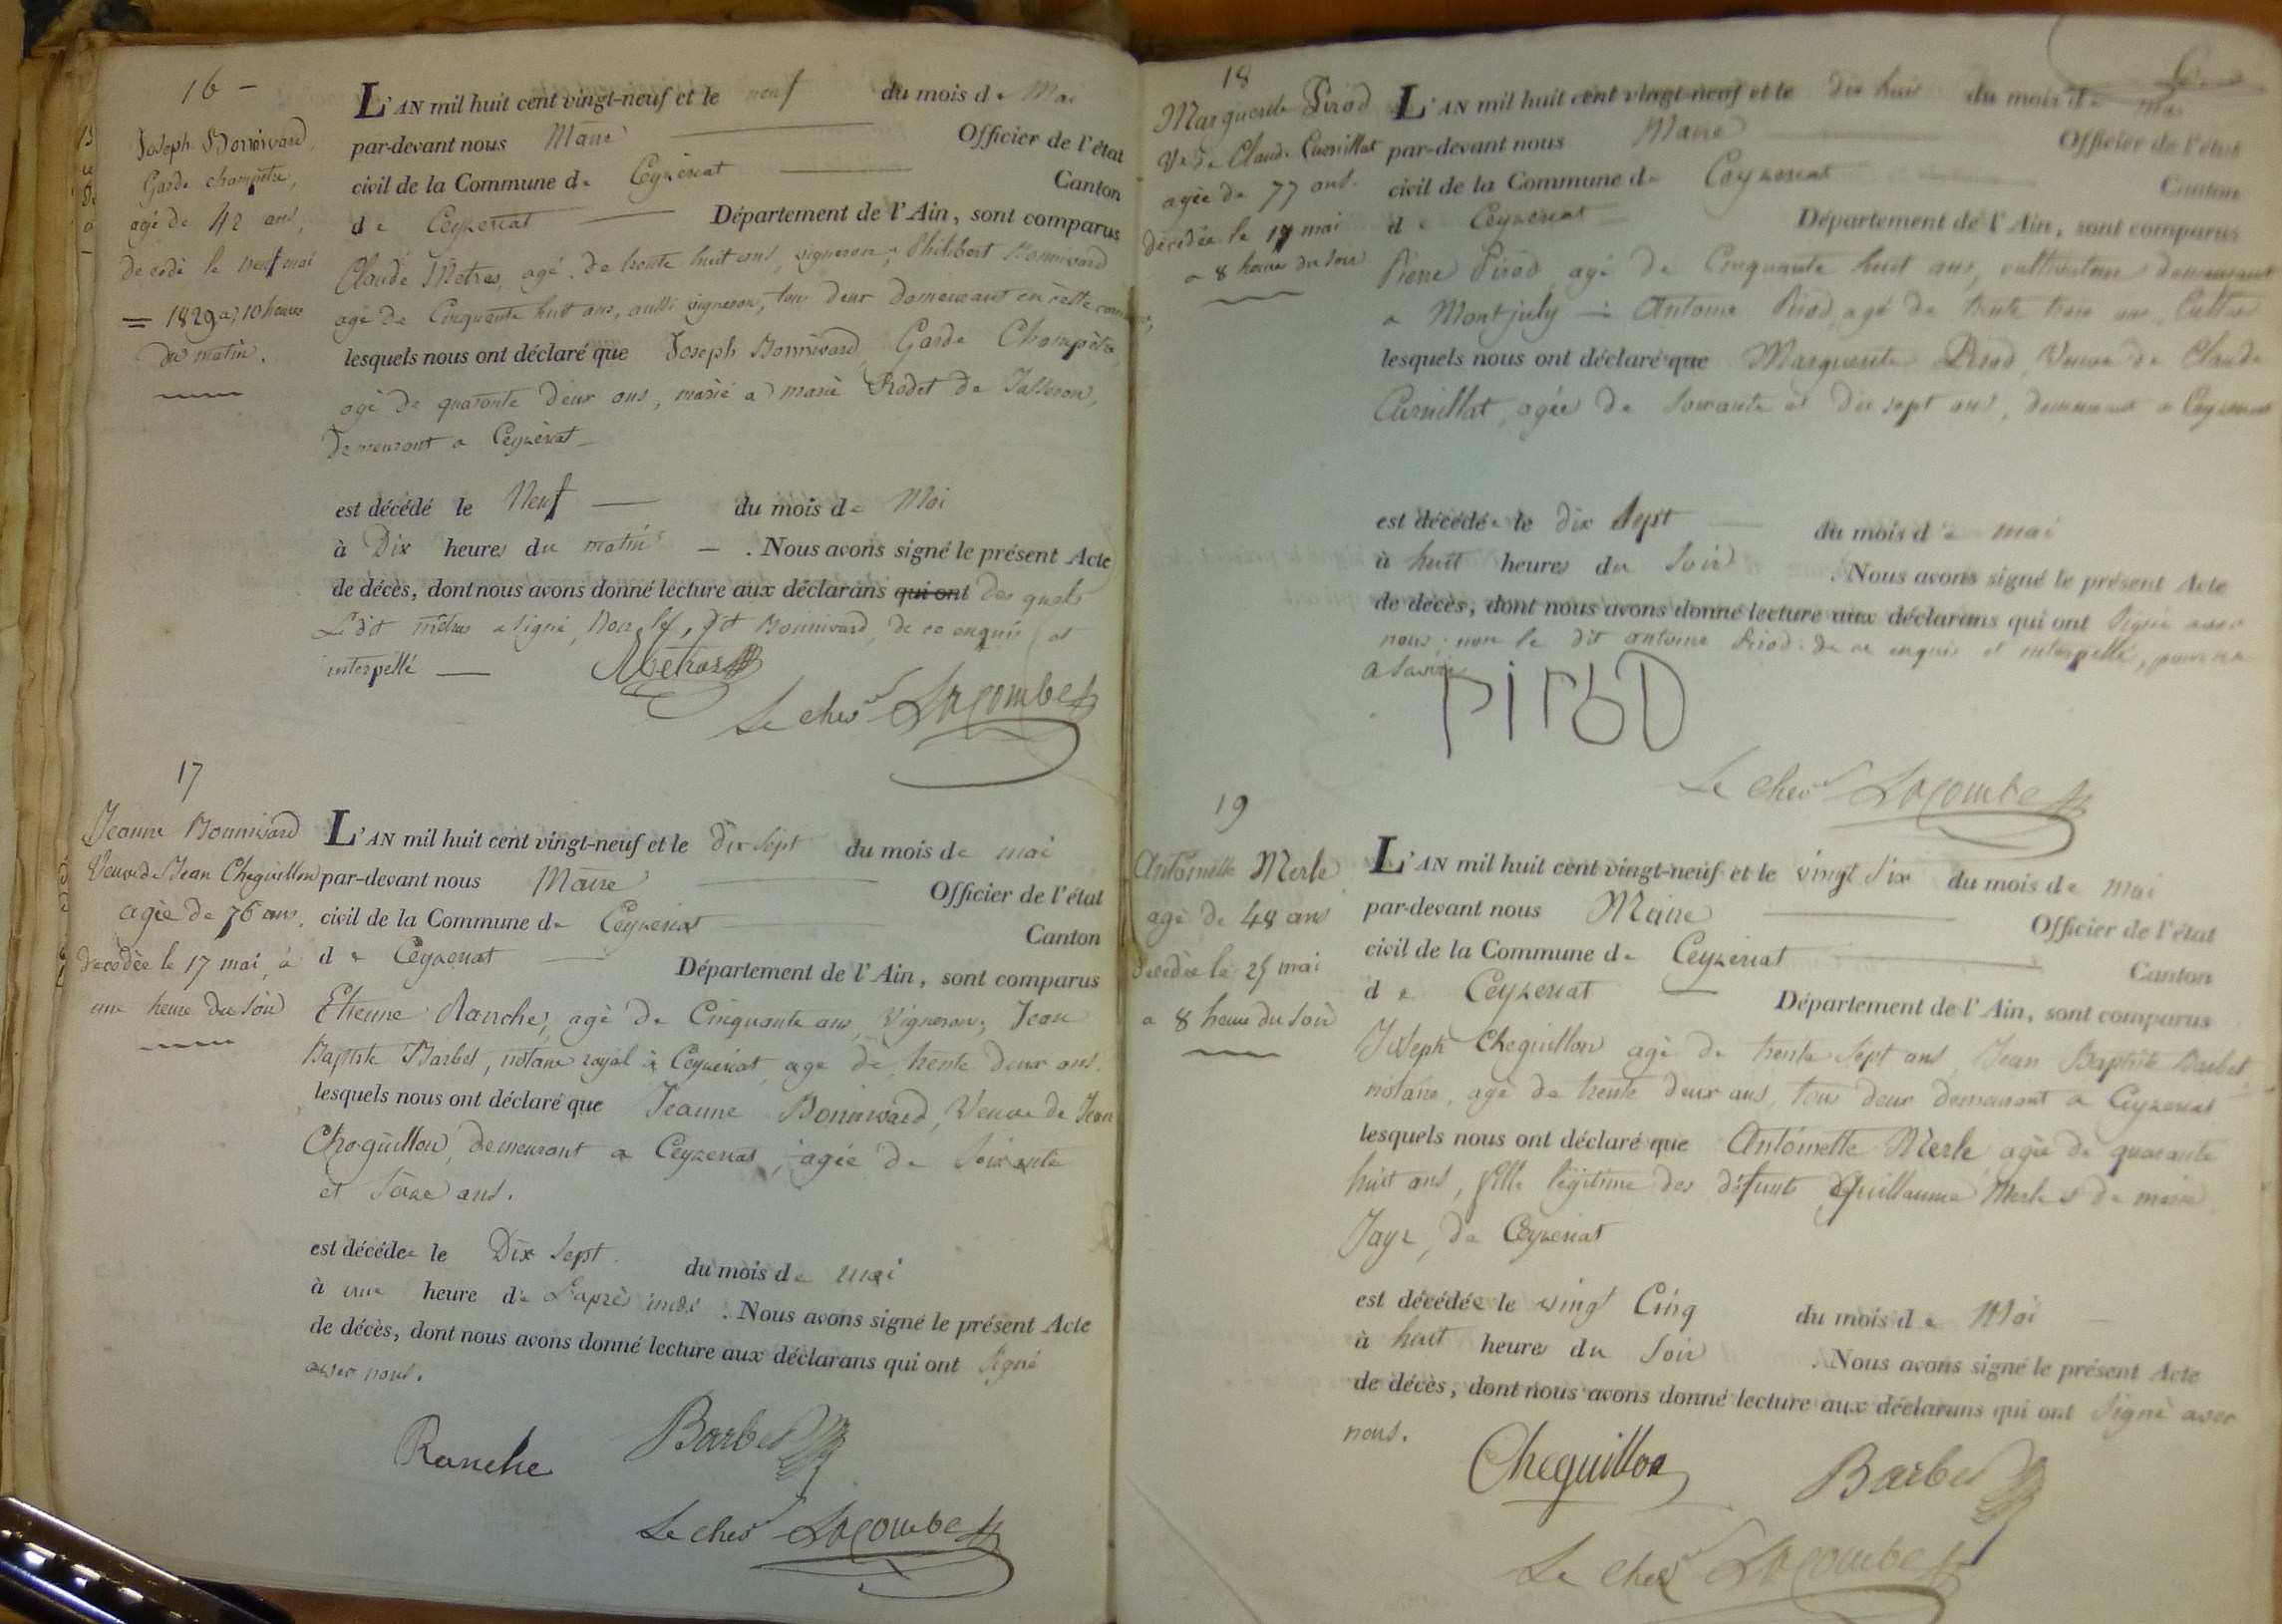 16 -
Joseph Bonnivard,
Garde champêtre,
agé de 42 ans,
décédé le neuf mai
= 1829 a, 10 heures
du matin.
L'AN mil huit cent vingt-neuf et le neuf du mois de Mai
par-devant nous Maire Officier de l'état
civil de la Commune de Ceyzériat Canton
de Ceyzeriat Département de l'Ain, sont comparus
Claude Mêtras, agé de trente huit ans, vigneron; Philibert Bonnivard
agé de Cinquante huit ans, aussi vigneron, tous deux demeurant en cette commune,
lesquels nous ont déclaré que Joseph Bonnivard, Garde Champêtre
agé de quarante deux ans, marié a marie Rodet de Jasseron,
demeurant a Ceyzériat
est décédé le Neuf du mois de Mai
à Dix heures du matin . Nous avons signé le présent Acte
de décès, dont nous avons donné lecture aux déclarans qui ont des quels
Le dit mêtras a signé, non le dit Bonnivard, de ce enquis et
interpellé Métras
Le cher Lacombe
17
Jeanne Bonnivard
Veuve de Jean Cheguillon
agée de 76 ans,
décédée le 17 mai, à
une heure du soir
L'AN mil huit cent vingt-neuf et le dix sept du mois de mai
par-devant nous Maire Officier de l'état
civil de la Commune de Ceyzeriat Canton
de Ceyzeriat Département de l'Ain, sont comparus
Etienne Ranche, agé de Cinquante ans, Vigneron; Jean
Baptiste Barbet, notaire royal à Ceyzeriat, agé de trente deux ans.
lesquels nous ont déclaré que Jeanne Bonnivard, Veuve de Jean
Cheguillon, demeurant a Ceyzeriat, agée de soixante
et seize ans.
est décédée le Dix Sept du mois de mai
à une heure de L'après midi . Nous avons signé le présent Acte
de décès, dont nous avons donné lecture aux déclarans qui ont signé
avec nous.
Ranche Barbet
Le cher Lacombe
18
Marguerite Pirod
Ve de Claude Curnillat
agée de 77 ans.
décédée le 17 mai
a 8 heures du soir
L'AN mil huit cent vingt-neuf et le dix huit du mois de mai
par-devant nous Maire Officier de l'état
civil de la Commune de Ceyzeriat Canton
de Ceyzeriat Département de l'Ain, sont comparus
Pierre Pirod, agé de Cinquante huit ans, cultivateur demeurant
a Montjuly - Antoine Pirod, agé de trente trois ans,
lesquels nous ont déclaré que Marguerite Pirod, Veuve de Claude
Curnillat, agée de soixante et dix sept ans, demeurant a Ceyzeriat
est décédée le dix Sept du mois de mai
à huit heures du Soir . Nous avons signé le présent Acte
de décès, dont nous avons donné lecture aux déclarans qui ont signé avec
nous, non le dit antoine Pirod de ce enquis et interpellé, pour ne
a savoir
PIrOD
Le cher Lacombe
19
Antoinette Merle
agé de 48 ans
décédée le 25 mai
a 8 heures du soir
L'AN mil huit cent vingt-neuf et le vingt six du mois de mai
par-devant nous Maire Officier de l'état
civil de la Commune de Ceyzeriat Canton
de Ceyzeriat Département de l'Ain, sont comparus
Joseph Cheguillon agé de trente sept ans, Jean Baptiste Barbet
notaire, agé de trente deux ans, tous deux demeurant a Ceyzeriat
lesquels nous ont déclaré que Antoinette Merle agée de quarante
huit ans, fille légitime des défunts Guillaume Merle & de marie
Jayr, de Ceyzeriat
est décédée le vingt Cinq du mois de Mai
à huit heures du Soir . Nous avons signé le présent Acte
de décès, dont nous avons donné lecture aux déclarans qui ont signé avec
nous.
Cheguillon Barbet
Le cher Lacombe